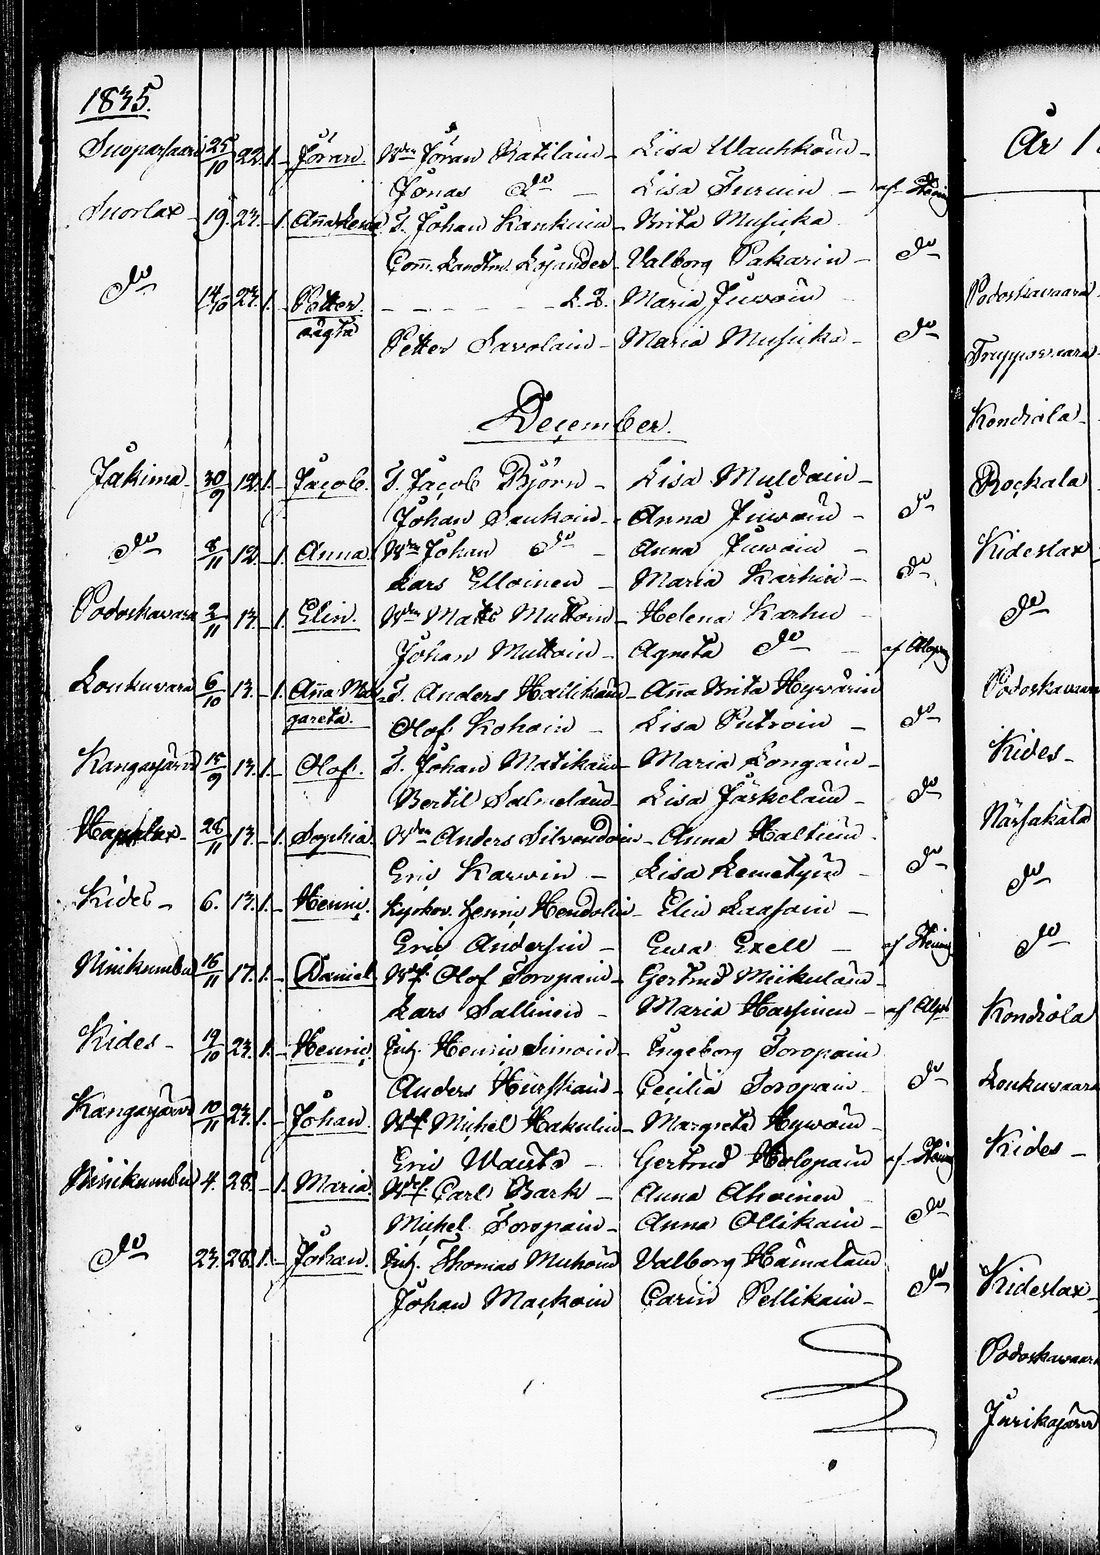 1835.
Suoparsaari 25/10 22. 1. – Jöran. Wdn Jöran Ratilain – Lisa Wauhkoin –
Jonas Do – Lisa Turuin – af
Suorlax – 19. 23. – 1. Aña Lena T. Johan Kankuin – Brita Musicka
Com. Landtm. Lojander – Valborg Pakarin – Do
Do 14/10 23. 1. – Petter – – – – L. 2. Maria Juwoin
oägta
Petter Savolain – Maria Musicka – Do
December.
Jakima – 30/9 12. 1. – Jacob. T. Jacob Björn – Lisa Muldain –
Johan Saukoin – Anna Juwoin – Do
Do 8/11 12. – 1. Anna. Wdn Johan Do – Anna Juwoin –
Lars Elloinen – Maria Karhin – Do
Podoskavara 2/11 13. – 1. Elin. Wdn Matts Muttoin – Helena Karhu –
Johan Muttoin – Agneta Do –
Loukuvara 6/10 13. – 1. Aña Mar- T. Anders Hailikain – Aña Brita Hywärin
gareta. Olof Kohoin – Lisa Putroin – Do
Kangasjärvi 15/9 13. 1. – Olof. T. Johan Matikain – Maria Longain –
Bertil Salmelain – Lisa Jäskelain – Do
28/11 13. – 1. Sophia. Wdn Anders Silvendoin – Anna Haltuin –
Eric Karvin – Lisa Lemetyin – Do
Kides – 6. 13. 1. – Henric. Kyrkov. Henric Hendolin – Elin Laasain –
Eric Andersin – Ewa Exell – af
Niinikumbu 16/11 17. 1. – Daniel. Olof Toropain – Gertrud Miikulain –
Lars Sallinen – Maria Hassinen – af
Kides – 19/10 23. 1. – Henric. Inh. Henric Simoin – Ingeborg Toropain
Anders Hurskain – Cecilia Toropain – Do
Kangasjärvi 10/11 23. 1. – Johan. Michel Hakulin – Margreta Hywoin –
Eric Wauts – Gertrud Holopain af
Niinikumbu 4. 28. – 1. Maria. Carl Bark – Anna Ahoinen –
Michel Toropain – Anna Ollikain – Do
Do 23. 28. 1. – Johan. Inh. Thomas Muhoin Valborg Hämälain
Johan Mackoin Carin Pellikain – Do
År 1
Podoskavaara
Kondiola
Rockala
Kideslax
Do
Podoskavaara
Kides –
Närsäkälä
Do
Do
Kondiola
Loukuvaara
Kides –
Kideslax –
Podoskavaara
Jurikajärvi